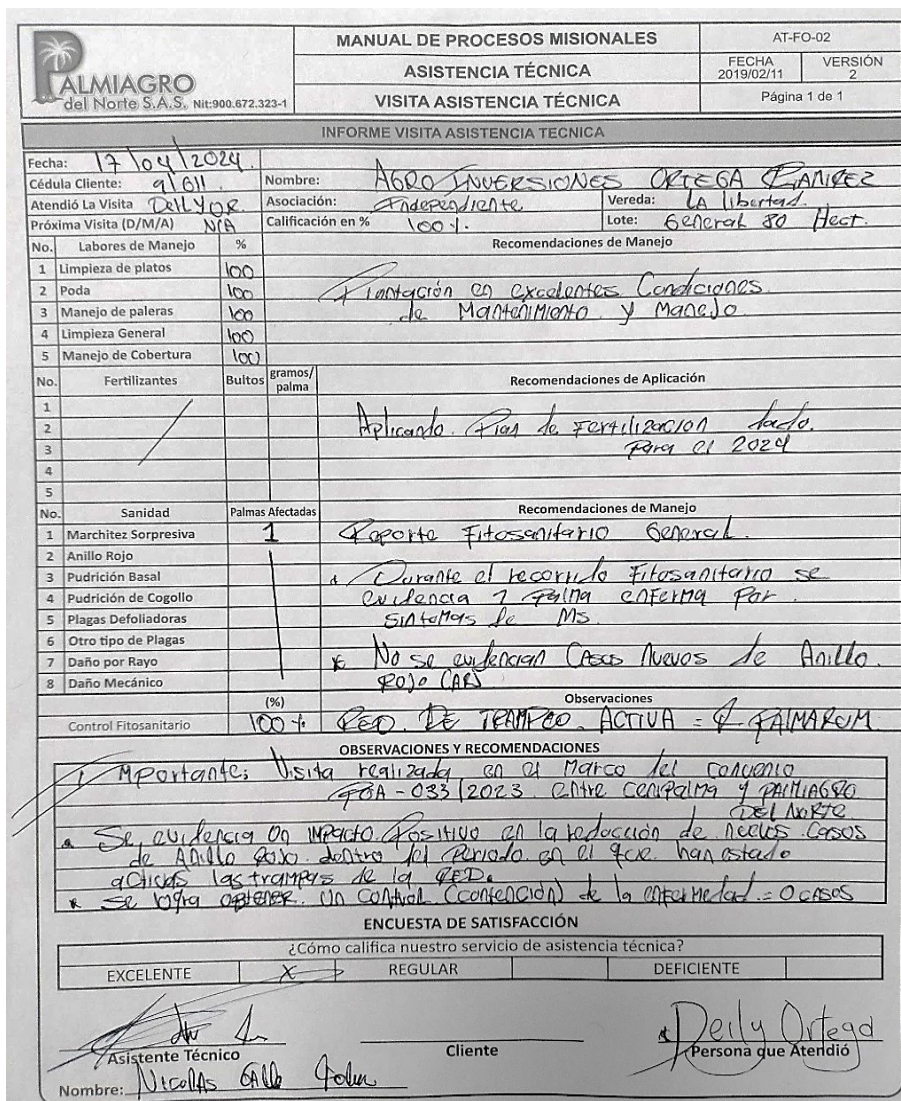 PALMIAGRO
del Norte S.A.S. Nit:900.672.323-1
MANUAL DE PROCESOS MISIONALES
ASISTENCIA TÉCNICA
VISITA ASISTENCIA TÉCNICA
AT-FO-02
FECHA 2019/02/11
VERSIÓN 2
Página 1 de 1
INFORME VISITA ASISTENCIA TECNICA
Fecha: 17/04/2024.
Cédula Cliente: 91611. Nombre: AGRO INVERSIONES ORTEGA RAMIREZ
Atendió La Visita DEILY OR. Asociación: Independiente Vereda: LA libertad.
Próxima Visita (D/M/A) N/A Calificación en % 100%. Lote: General 80 Hect.
No. Labores de Manejo % Recomendaciones de Manejo
1 Limpieza de platos 100
2 Poda 100 Plantación en excelentes Condiciones
3 Manejo de paleras 100 de Mantenimiento y Manejo
4 Limpieza General 100
5 Manejo de Cobertura 100
No. Fertilizantes Bultos gramos/palma Recomendaciones de Aplicación
1
2 Aplicando Plan de Fertilización dado.
3 Para el 2024
4
5
No. Sanidad Palmas Afectadas Recomendaciones de Manejo
1 Marchitez Sorpresiva 1 Reporte Fitosanitario General.
2 Anillo Rojo
3 Pudrición Basal * Durante el recorrido Fitosanitario se
4 Pudrición de Cogollo evidencia 1 Palma enferma Por
5 Plagas Defoliadoras sintomas de Ms.
6 Otro tipo de Plagas
7 Daño por Rayo * No se evidencian Casos Nuevos de Anillo
8 Daño Mecánico ROJO (AR)
(%) Observaciones
Control Fitosanitario 100% RED. DE TRAMPEO. ACTIVA = R. PALMARUM
OBSERVACIONES Y RECOMENDACIONES
Importante; Visita realizada en el Marco del convenio
- 033/2023. entre Cenipalma y PALMIAGRO
DEL NORTE
* Se evidencia un IMPACTO Positivo en la reducción de nuevos casos
de Anillo Rojo. dentro del Periodo en el que han estado
activas las trampas de la RED.
* Se logra OBTENER. un control (contención) de la enfermedad = 0 CASOS
ENCUESTA DE SATISFACCIÓN
¿Cómo califica nuestro servicio de asistencia técnica?
EXCELENTE X REGULAR DEFICIENTE
Deily Ortega
Asistente Técnico Cliente Persona que Atendió
Nombre: Nicolas